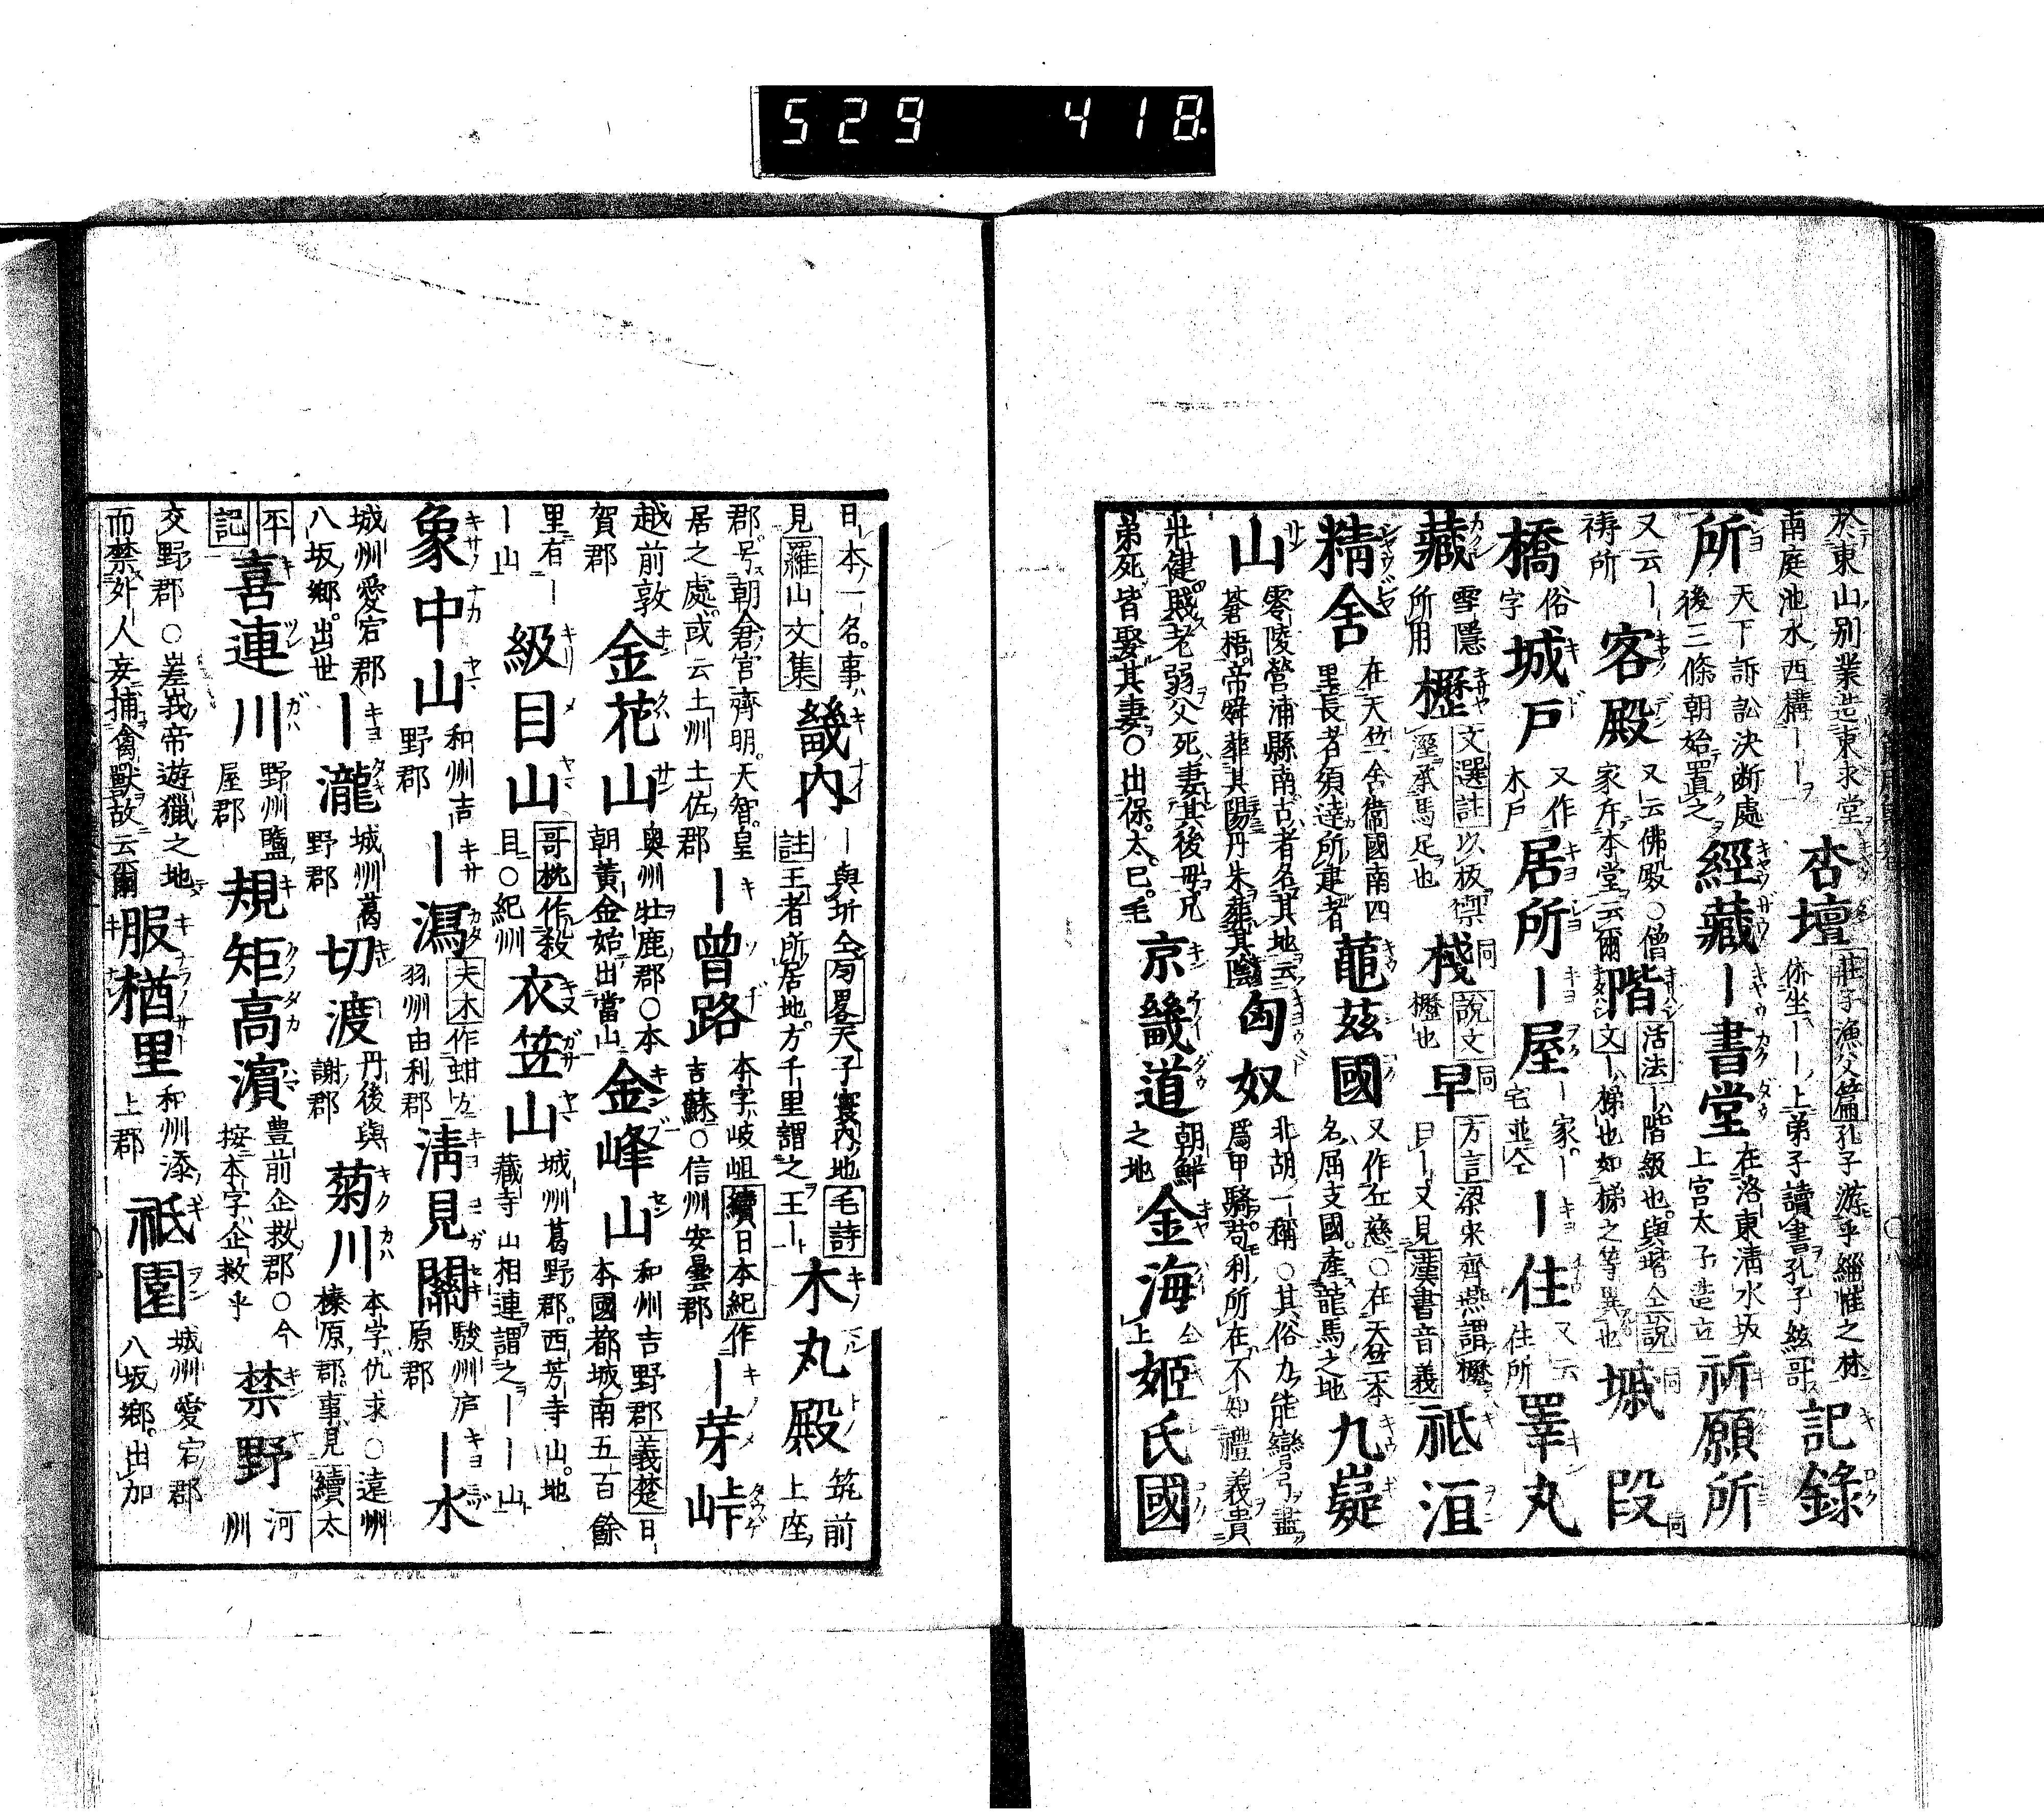 529 418
於東山別業造東求堂
南庭池水西構ーー
杏壇
莊子漁父篇孔子游乎緇帷之林
休坐ーー上弟子讀書孔子絃哥
記錄
所
天下訴訟決断處
後三條朝始置之
經藏
ー書堂
在洛東淸水坂
上宮太子造立
祈願所
又云ー
祷所
客殿
又云佛殿○僧
家斥本堂云爾
階
活法ー階級也與堦仝説
文ー梯也如梯之等異也
堿同
段同
橋
俗
字
城戸
又作
木戸
居所
ー屋
ー家ー
宅並仝
ー住
又云
住所
睪丸
藏
雪隱
所用
櫪
文選註以板禦
溼承馬足也
棧同
說文
櫪也
早同
方言梁宋齊燕謂櫪
曰ー又見漢書音義
祗洹
精舍
在天竺舍衞國南四
里長者須達所建者
龜茲國
又作丘慈○在天竺本
名屈支國產龍馬之地
九嶷
山
零陵營浦縣南古者名其地云
蒼梧帝舜葬其陽丹朱葬其陰
匈奴
北胡一稱○其俗力能彎弓盡
爲甲騎苟利所在不知禮義貴
壯健賎老弱父死妻其後母兄
弟死皆娶其妻○出保太已毛
京畿道
朝鮮
之地
金海
仝
上
姬氏國
日本一名事ハ
見羅山文集
畿内
ー與圻仝匀畧天子寰内地毛詩
註王者所居地方千里謂之王ー
木丸殿
筑前
上座
郡号朝倉宮齊明天智皇
居之處或云土州土佐郡
ー曾路
本字岐岨續日本紀作
吉蘇○信州安曇郡
ー芽峠
越前敦
賀郡
金花山
奥州牡鹿郡○本
朝黃金始出當山
金峰山
和州吉野郡義楚曰
本國都城南五百餘
里有ー
ー山
級目山
哥枕作殺
目○紀州
衣笠山
城州葛野郡西芳寺山地
藏寺山相連謂之ーー山
象中山
和州吉
野郡
ー瀉
夫木作蚶方
羽州由利郡
淸見關
駿州庐
原郡
ー水
城州愛宕郡
八坂郷出世
ー瀧
城州葛
野郡
切渡
丹後與
謝郡
菊川
本字仇求○遠州
榛原郡事見續太
平
記
喜連川
野州鹽
屋郡
規矩高濵
豊前企救郡○今
按本字企救乎
禁野
河
州
交野郡○嵳峩帝遊獵之地
而禁外人妄捕禽獸故云爾
服楢里
和州添
上郡
祗園
城州愛宕郡
八坂郷出加